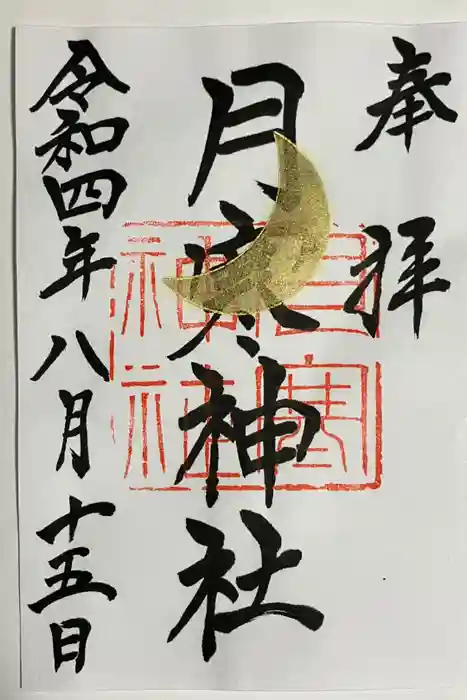 奉拝
月寒神社
令和四年八月十五日
月寒神社